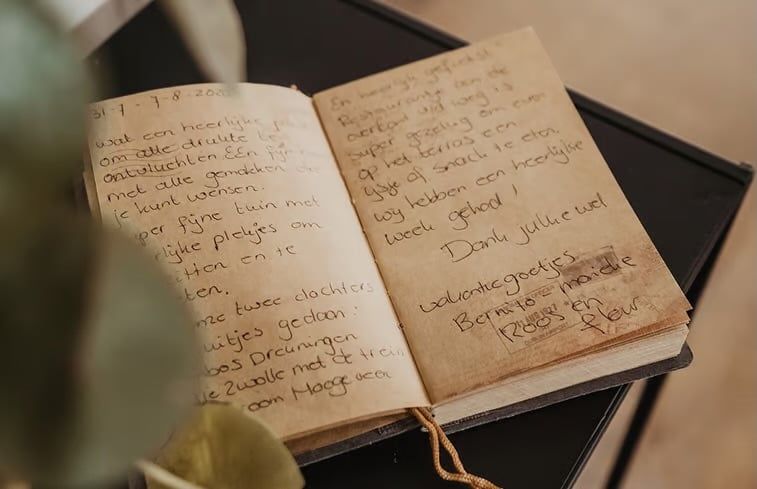 31-7 - 7-8-202
wat een heerlijke
om alle drukte te
ontvluchten. EEn fijn
met alle gemakken die
je kunt wensen.
per fijne tuin met
lijke plekjes om
itten en te
ten.
ze twee dochters
uitjes gedaan:
bos Dreuningen
je Zwolle met de trein
oom Hoogeveen
En heerlijk gefietst
Restaurantje aan de
overkant v/d weg is
super gezellig om even
op het terras een
ijsje of snack te eten.
wij hebben een heerlijke
week gehad!
Dank jullie wel
vakantiegroetjes
maieke
Roos en
fleur